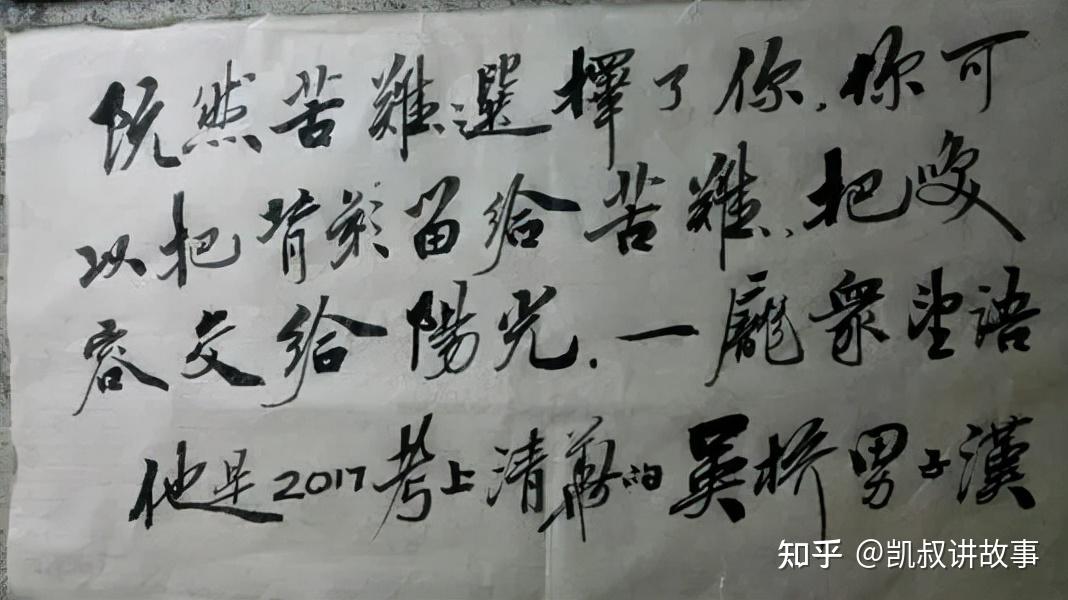 既然苦難選擇了你,你可
以把背影留给苦難,把笑
容交给陽光.一龐衆望语
他是2017考上清華的吴桥男子漢
知乎 @凯叔讲故事